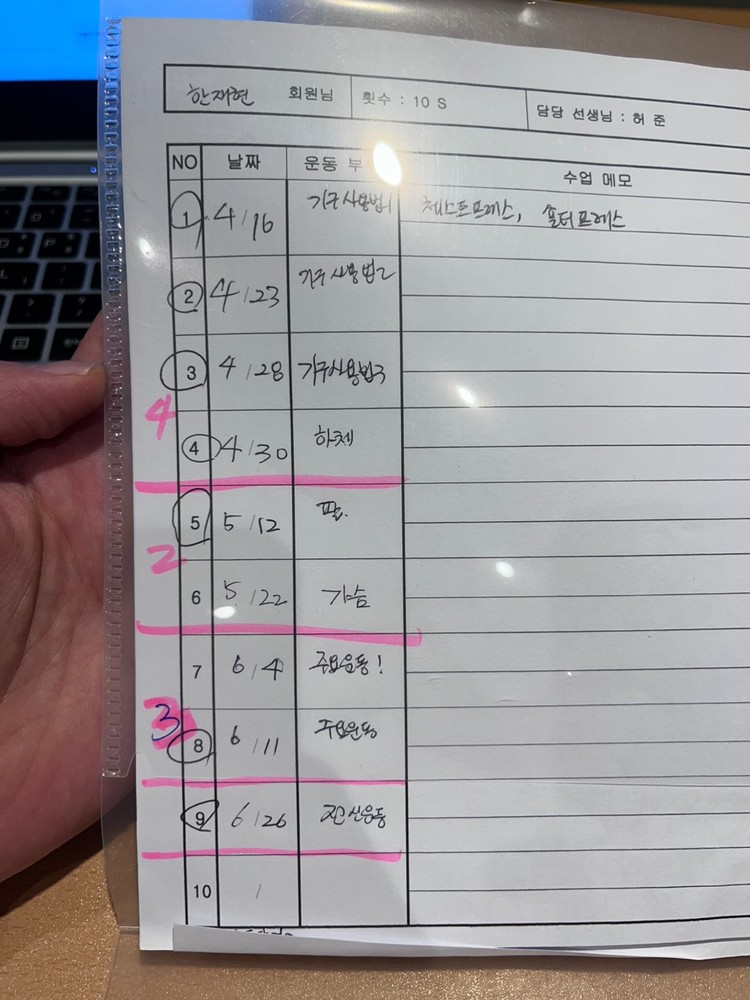 한재현 회원님 횟수 : 10 S 담당 선생님 : 허 준
NO 날짜 운동 부 수업 메모
1 4/16 기구사용법1 체스트프레스, 숄더프레스
2 4/23 기구사용법2
3 4/28 기구사용법3
4
4 4/30 하체
5 5/12 팔.
2
6 5/22 가슴
7 6/4 주요운동!
3
8 6/11 주요운동
9 6/26 전신운동
10 /